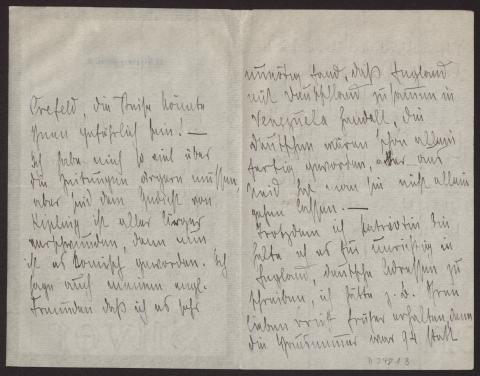 Crefeld, die Preise könnte
Ihnen gefährlich sein! —
Ich habe mich so viel über
die Zeitungen ärgern müssen,
aber mit dem Gedicht von
Kipling ist aller Ärger
verschwunden, denn nun
ist es komisch geworden. Ich
sage auch meinen engl.
Freunden daß ich es sehr
unnötig fand, daß England
mit Deutschland zusammen in
Venezuela handelt, die
Deutschen wären schon allein
fertig geworden, aber aus
Neid hat man sie nicht allein
gehen lassen. —
Trotzdem ich Patriotin bin
halte ich es für unrichtig in
England, deutsche Adressen zu
schreiben, ich hätte z. B. Ihren
lieben Brief früher erhalten, denn
die Hausnummer war 94 statt